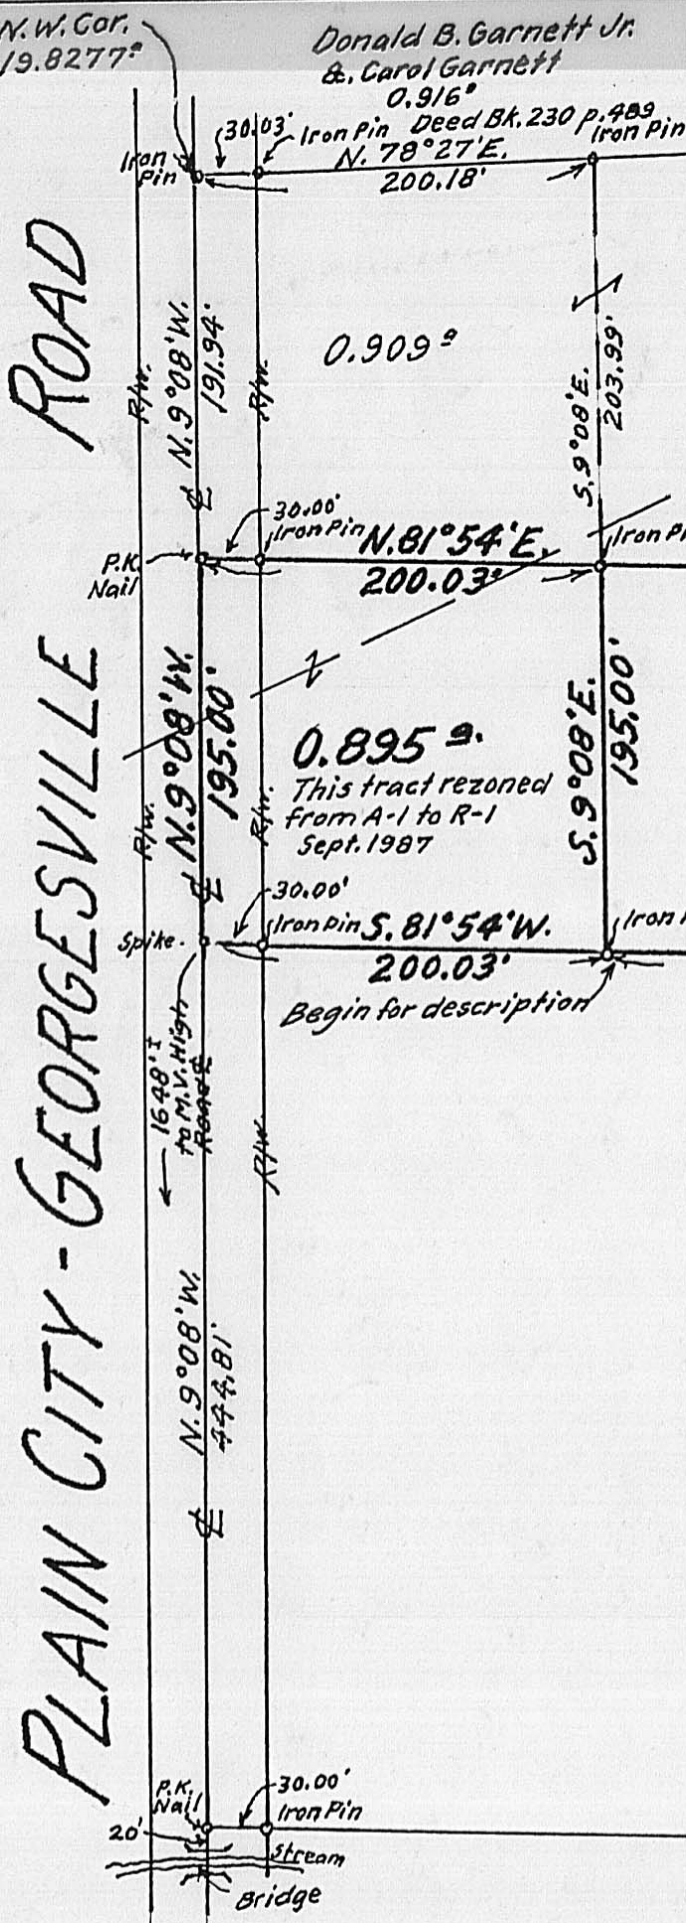 N.W. Cor.
19.8277ª
Donald B. Garnett Jr.
&. Carol Garnett
0.916ª
Deed Bk. 230 p. 489
30.03'
Iron Pin
Iron Pin
Iron Pin
N. 78°27'E.
200.18'
N. 9°08'W.
191.94'
R/W.
R/W.
0.909ª
S. 9°08'E.
203.99'
℄
30.00'
Iron Pin
P.K.
Nail
N. 81°54'E.
200.03'
Iron Pi
N. 9°08'W.
195.00'
R/W.
R/W.
0.895 ª.
This tract rezoned
from A-1 to R-1
Sept. 1987
S. 9°08'E.
195.00'
℄
30.00'
Spike.
Iron Pin
S. 81°54'W.
200.03'
Iron
Begin for description
1648'±
to M.V. High
Road ℄
R/W.
N. 9°08'W.
444.81'
℄
PLAIN CITY - GEORGESVILLE ROAD
P.K.
Nail
30.00'
Iron Pin
20'
Stream
Bridge